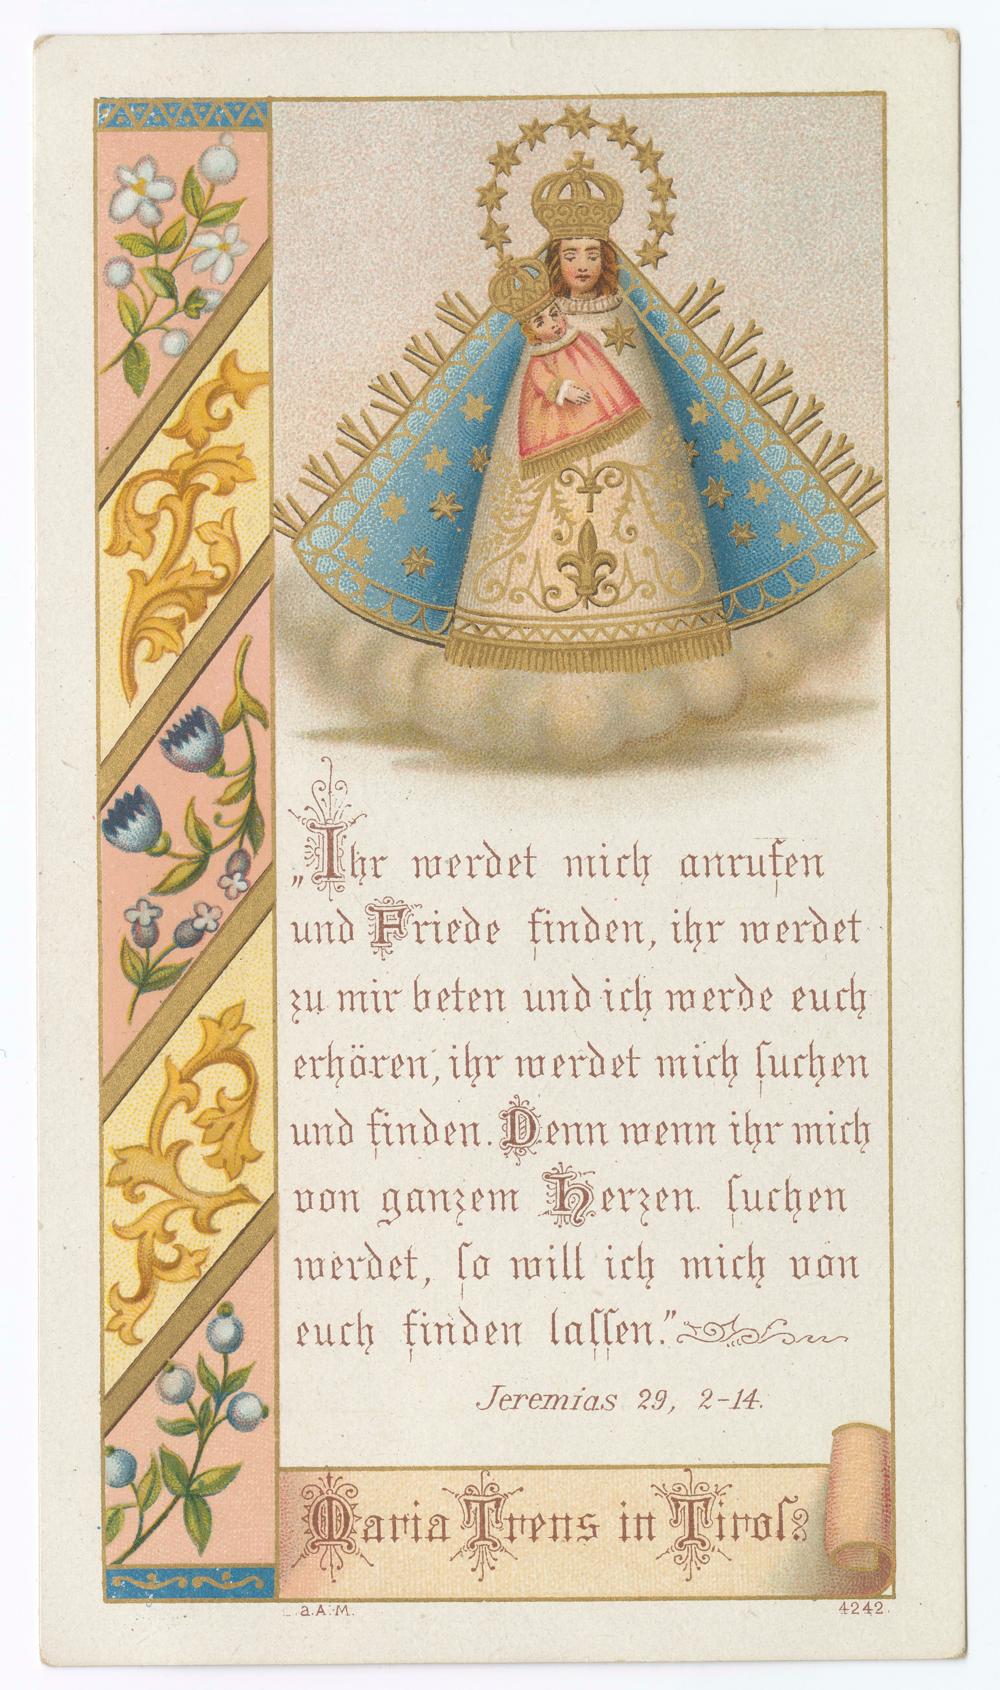 „Ihr werdet mich anrufen
und Friede finden, ihr werdet
zu mir beten und ich werde euch
erhören, ihr werdet mich ſuchen
und finden. Denn wenn ihr mich
von ganzem Herzen ſuchen
werdet, ſo will ich mich von
euch finden laſſen.”
Jeremias 29, 2-14.
Maria Trens in Tirol.
a.A.M.
4242.